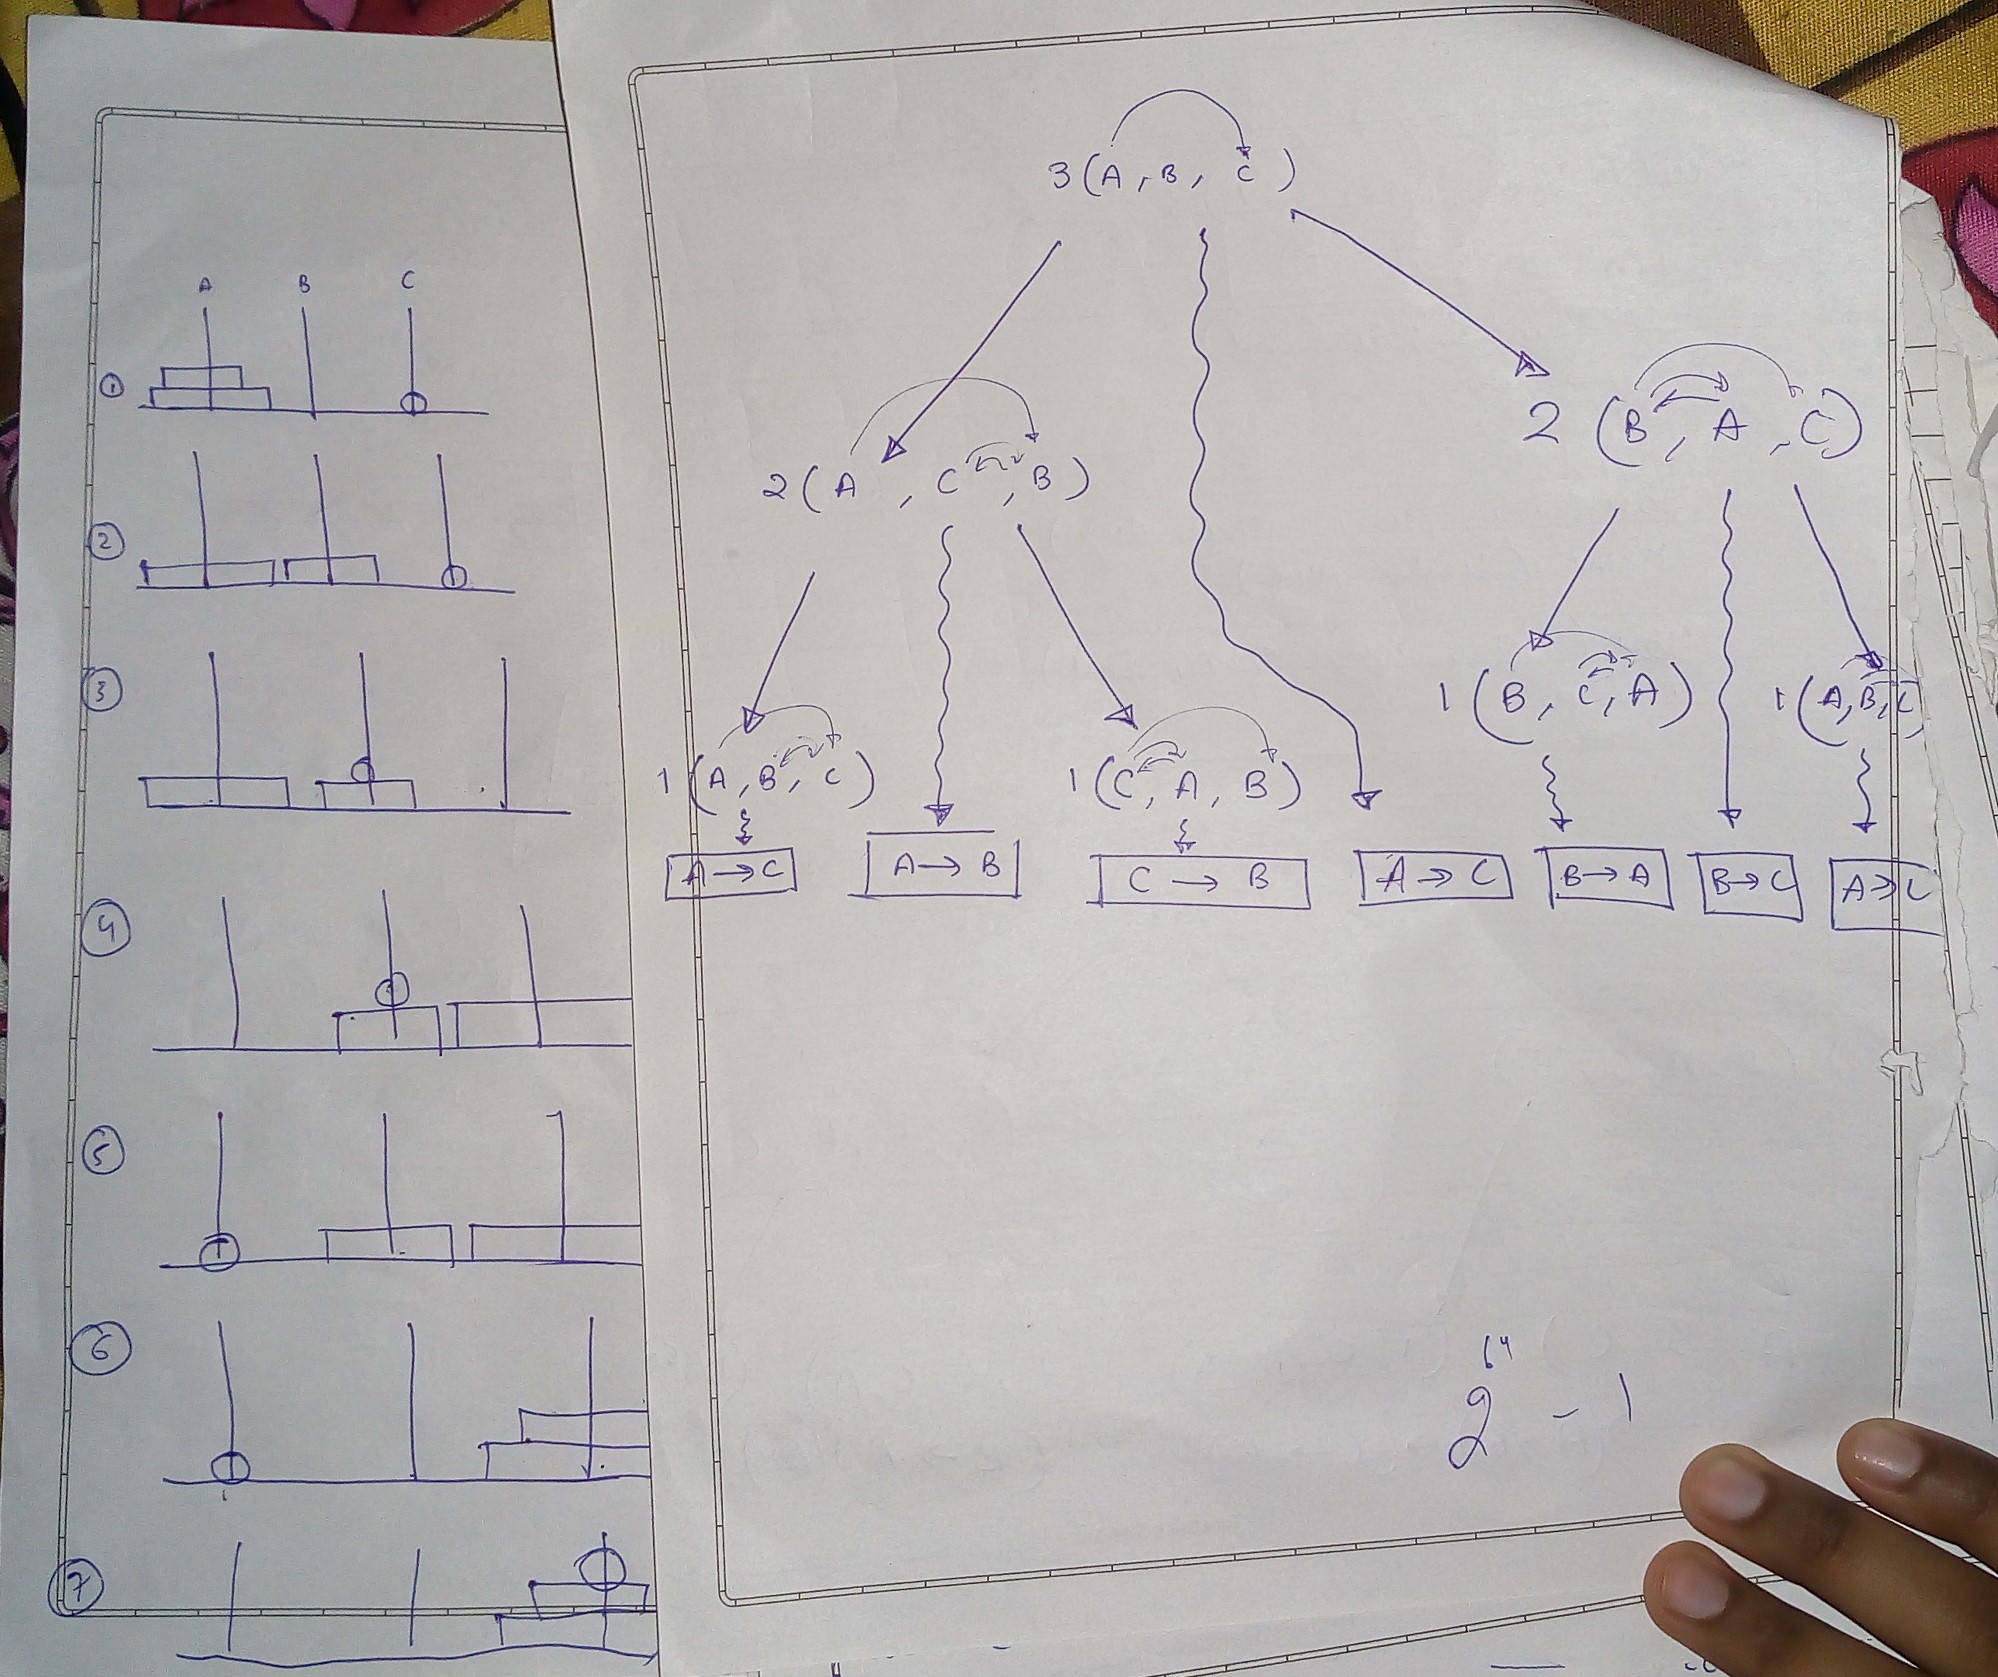 A B C
1
2
3
4
5
6
7
3 (A, B, C)
2 (A, C, B)
2 (B, A, C)
1 (A, B, C)
1 (C, A, B)
1 (B, C, A)
1 (A, B, C)
A → C
A → B
C → B
A → C
B → A
B → C
A → C
2^64 - 1